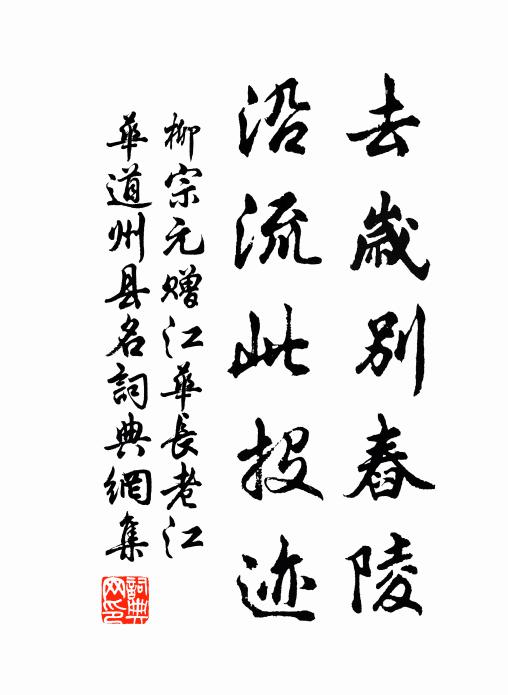 去歲別舂陵
沿流此投迹
柳宗元贈江華長老江
華道州县名詞典網集
詞典
网印